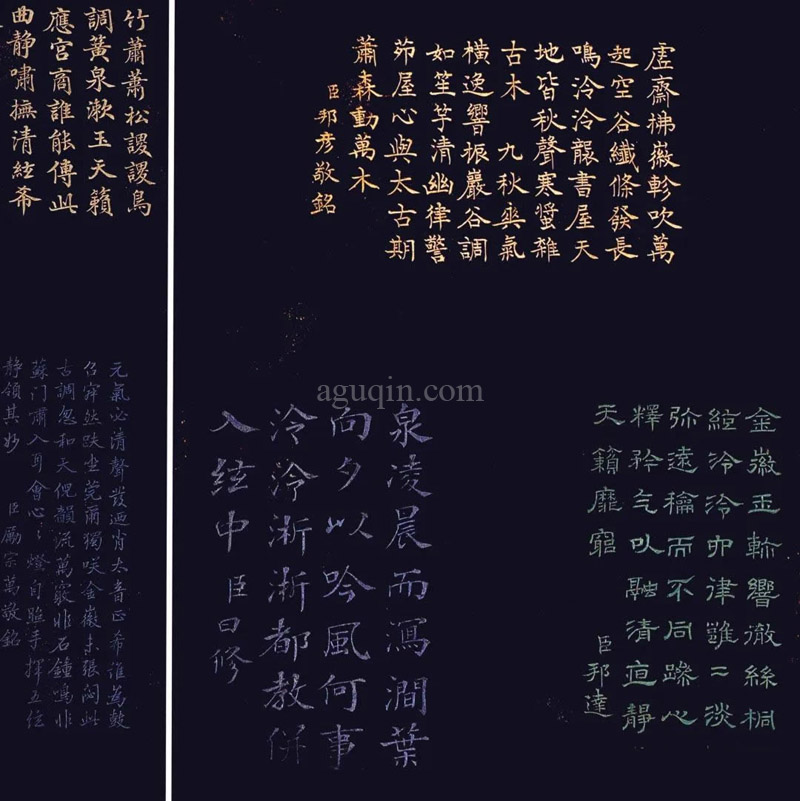 虗齋拂徽軫吹萬
起空谷纖條發長
鳴泠泠襲書屋天
地皆秋聲寒螿雜
古木 九秋爽氣
橫逸響振巖谷調
如笙竽清幽律警
茆屋心與太古期
蕭森動萬木
臣邦彥敬銘
金徽玉軫響徹絲桐
絃泠泠卬律雖二淡
弥遠龠而不同蹤心
釋矜气㠯融清直靜
天籟靡窮
臣邦達
泉凌晨而瀉澗葉
向夕以吟風何事
泠泠淅淅都教併
入絃中
臣曰修
竹蕭蕭松謖謖鳥
調簧泉漱玉天籟
應宮商誰能傳此
曲靜嘯撫清絃希
元氣必清聲發迺肖太音正希誰為鼓
召穽然趺坐莞爾獨咲金徽未張闷此
古調忽和天倪韻流萬竅非石鐘鳴非
蘇门嘯入耳會心々燈自貽手揮五絃
静領其妙 臣勵宗萬敬銘
aguqin.com